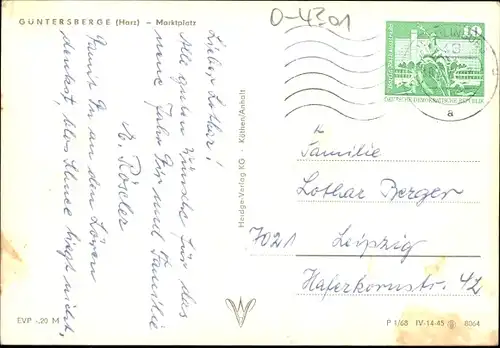 GÜNTERSBERGE (Harz) – Marktplatz
0-4301
Lieber Lothar!
Alle guten Wünsche für das
neue Jahr Dir und Familie
A. Rösler
Damit Du an den
denkst, Schnee liegt nicht,
Heldge-Verlag KG · Köthen/Anhalt
10
DEUTSCHE DEMOKRATISCHE REPUBLIK
a
Familie
Lothar Berger
7021 Leipzig
Haferkornstr. 42
EVP -.20 M
P 1/68 IV-14-45 8064